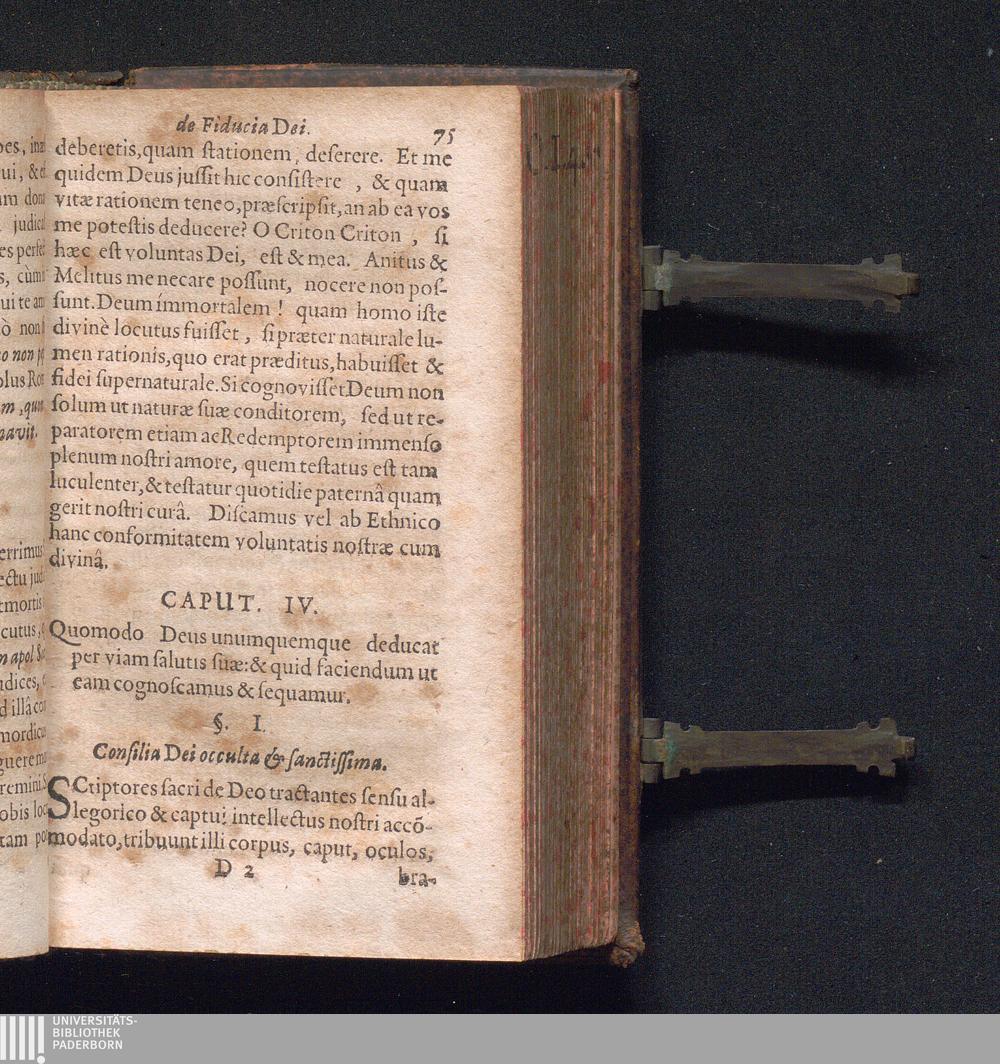 de Fiducia Dei. 75
deberetis, quam ſtationem, deſerere. Et me
quidem Deus juſſit hic conſiſtere , & quam
vitæ rationem teneo, præſcripſit, an ab ea vos
me poteſtis deducere? O Criton Criton , ſi
hæc eſt voluntas Dei, eſt & mea. Anitus &
Melitus me necare poſſunt, nocere non poſ-
ſunt. Deum immortalem ! quam homo iſte
divinè locutus fuiſſet , ſi præter naturale lu-
men rationis, quo erat præditus, habuiſſet &
fidei ſupernaturale. Si cognoviſſet Deum non
ſolum ut naturæ ſuæ conditorem, ſed ut re-
paratorem etiam ac Redemptorem immenſo
plenum noſtri amore, quem teſtatus eſt tam
luculenter, & teſtatur quotidie paternâ quam
gerit noſtri curâ. Diſcamus vel ab Ethnico
hanc conformitatem voluntatis noſtræ cum
divinâ.
CAPUT. IV.
Quomodo Deus unumquemque deducat
per viam ſalutis ſuæ: & quid faciendum ut
eam cognoſcamus & ſequamur.
§. I.
Conſilia Dei occulta & ſanctiſſima.
SCriptores ſacri de Deo tractantes ſenſu al-
legorico & captui intellectus noſtri accō-
modato, tribuunt illi corpus, caput, oculos,
D 2 bra-
UNIVERSITÄTS-
BIBLIOTHEK
PADERBORN